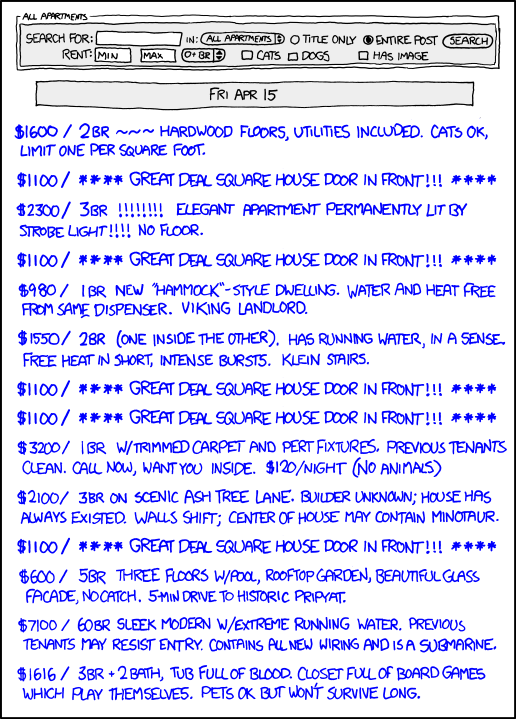 ALL APARTMENTS
SEARCH FOR: IN: ALL APARTMENTS TITLE ONLY ENTIRE POST SEARCH
RENT: MIN MAX 0+ BR CATS DOGS HAS IMAGE
FRI APR 15
$1600 / 2BR ~~~ HARDWOOD FLOORS, UTILITIES INCLUDED. CATS OK,
LIMIT ONE PER SQUARE FOOT.
$1100 / **** GREAT DEAL SQUARE HOUSE DOOR IN FRONT!!! ****
$2300 / 3BR !!!!!!!! ELEGANT APARTMENT PERMANENTLY LIT BY
STROBE LIGHT!!!! NO FLOOR.
$1100 / **** GREAT DEAL SQUARE HOUSE DOOR IN FRONT!!! ****
$980 / 1BR NEW "HAMMOCK"-STYLE DWELLING. WATER AND HEAT FREE
FROM SAME DISPENSER. VIKING LANDLORD.
$1550 / 2BR (ONE INSIDE THE OTHER). HAS RUNNING WATER, IN A SENSE.
FREE HEAT IN SHORT, INTENSE BURSTS. KLEIN STAIRS.
$1100 / **** GREAT DEAL SQUARE HOUSE DOOR IN FRONT!!! ****
$1100 / **** GREAT DEAL SQUARE HOUSE DOOR IN FRONT!!! ****
$3200 / 1BR W/TRIMMED CARPET AND PERT FIXTURES. PREVIOUS TENANTS
CLEAN. CALL NOW, WANT YOU INSIDE. $120/NIGHT (NO ANIMALS)
$2100 / 3BR ON SCENIC ASH TREE LANE. BUILDER UNKNOWN; HOUSE HAS
ALWAYS EXISTED. WALLS SHIFT; CENTER OF HOUSE MAY CONTAIN MINOTAUR.
$1100 / **** GREAT DEAL SQUARE HOUSE DOOR IN FRONT!!! ****
$600 / 5BR THREE FLOORS W/POOL, ROOFTOP GARDEN, BEAUTIFUL GLASS
FACADE, NO CATCH. 5-MIN DRIVE TO HISTORIC PRIPYAT.
$7100 / 60BR SLEEK MODERN W/EXTREME RUNNING WATER. PREVIOUS
TENANTS MAY RESIST ENTRY. CONTAINS ALL NEW WIRING AND IS A SUBMARINE.
$1616 / 3BR + 2 BATH, TUB FULL OF BLOOD. CLOSET FULL OF BOARD GAMES
WHICH PLAY THEMSELVES. PETS OK BUT WON'T SURVIVE LONG.